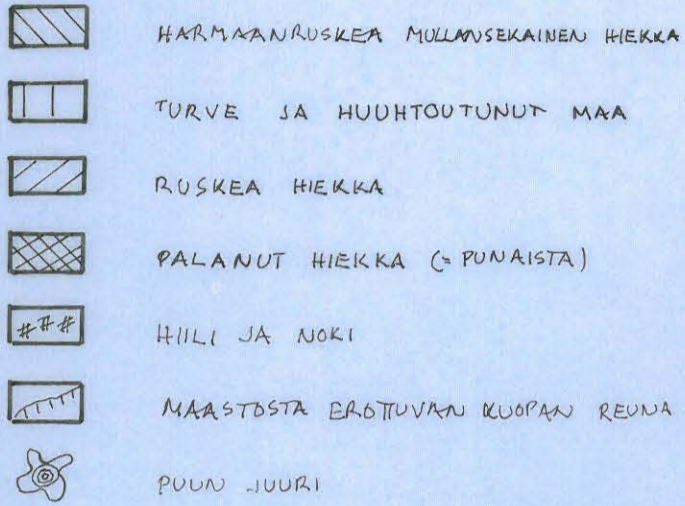 HARMAANRUSKEA MULLANSEKAINEN HIEKKA
TURVE JA HUUHTOUTUNUT MAA
RUSKEA HIEKKA
PALANUT HIEKKA (= PUNAISTA)
HIILI JA NOKI
MAASTOSTA EROTTUVAN KUOPAN REUNA
PUUN JUURI